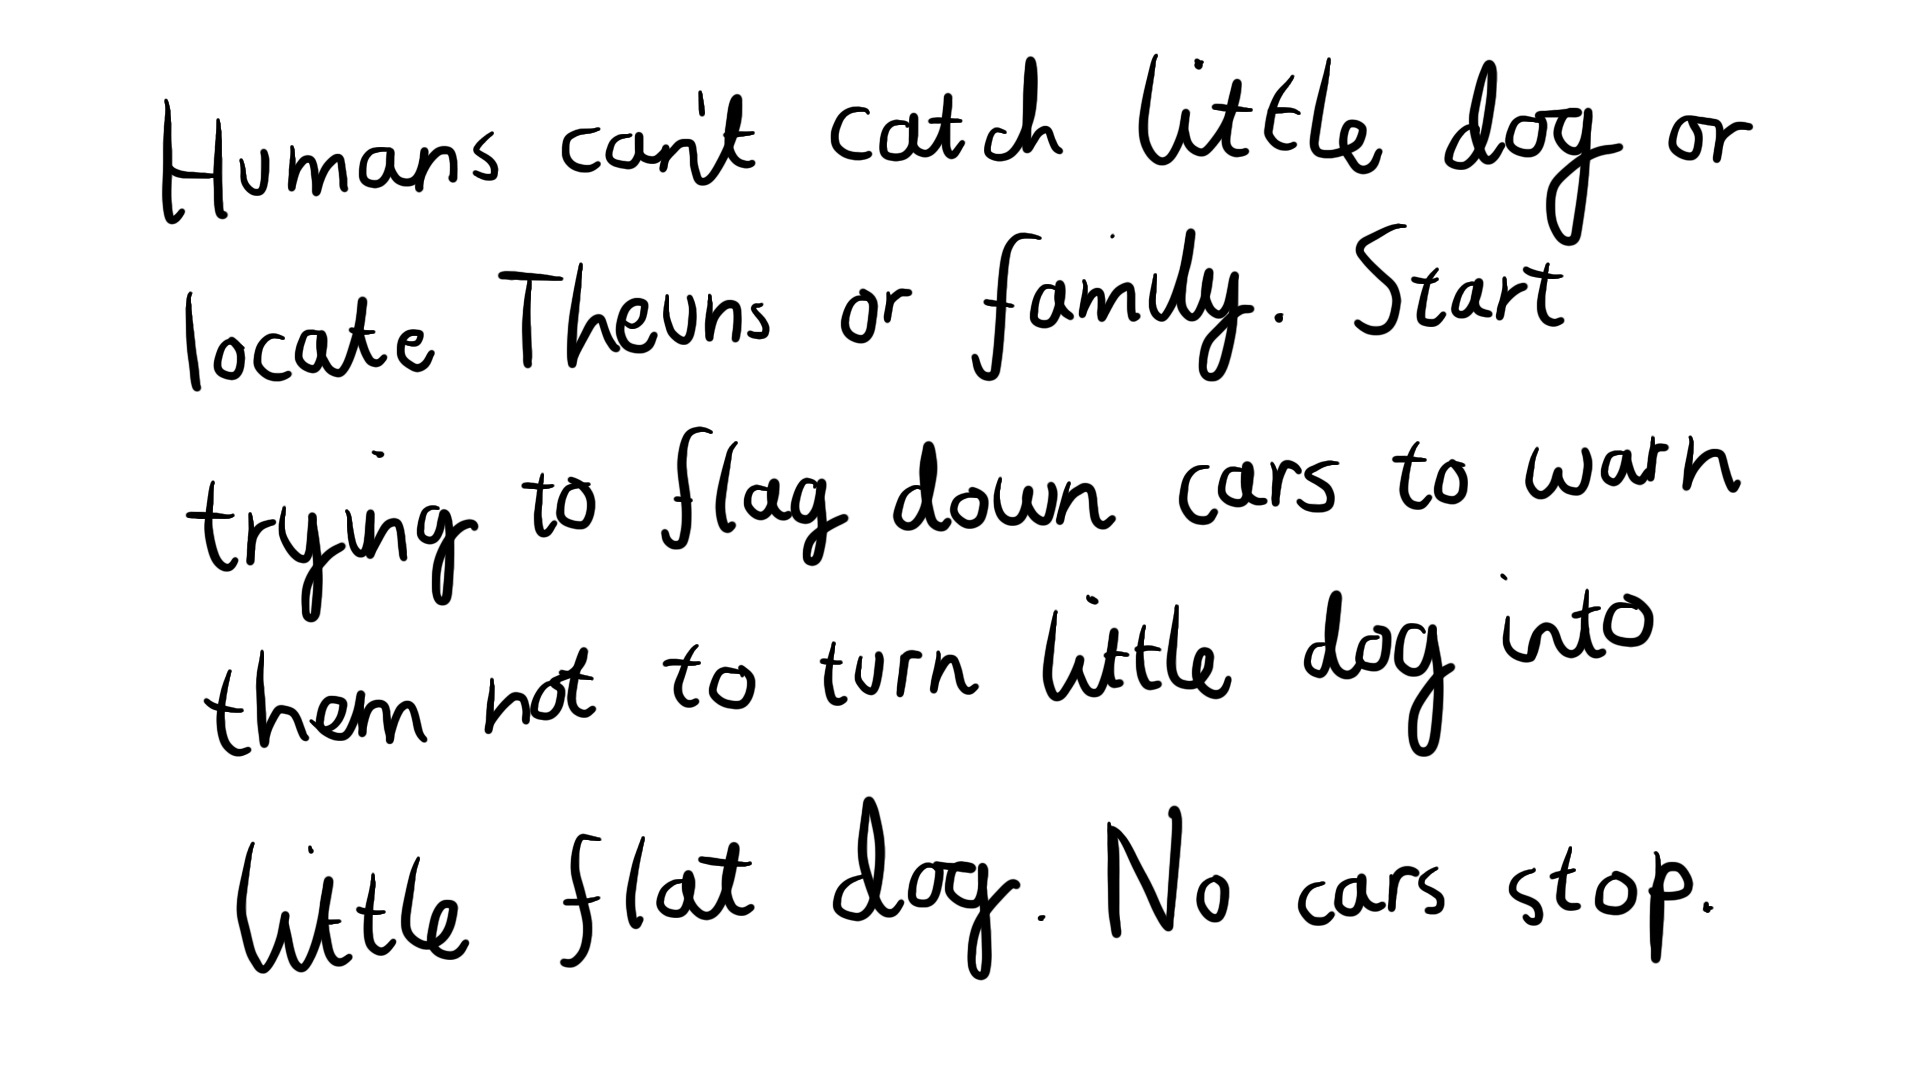 Humans can't catch little dog or
locate Theuns or family. Start
trying to flag down cars to warn
them not to turn little dog into
little flat dog. No cars stop.